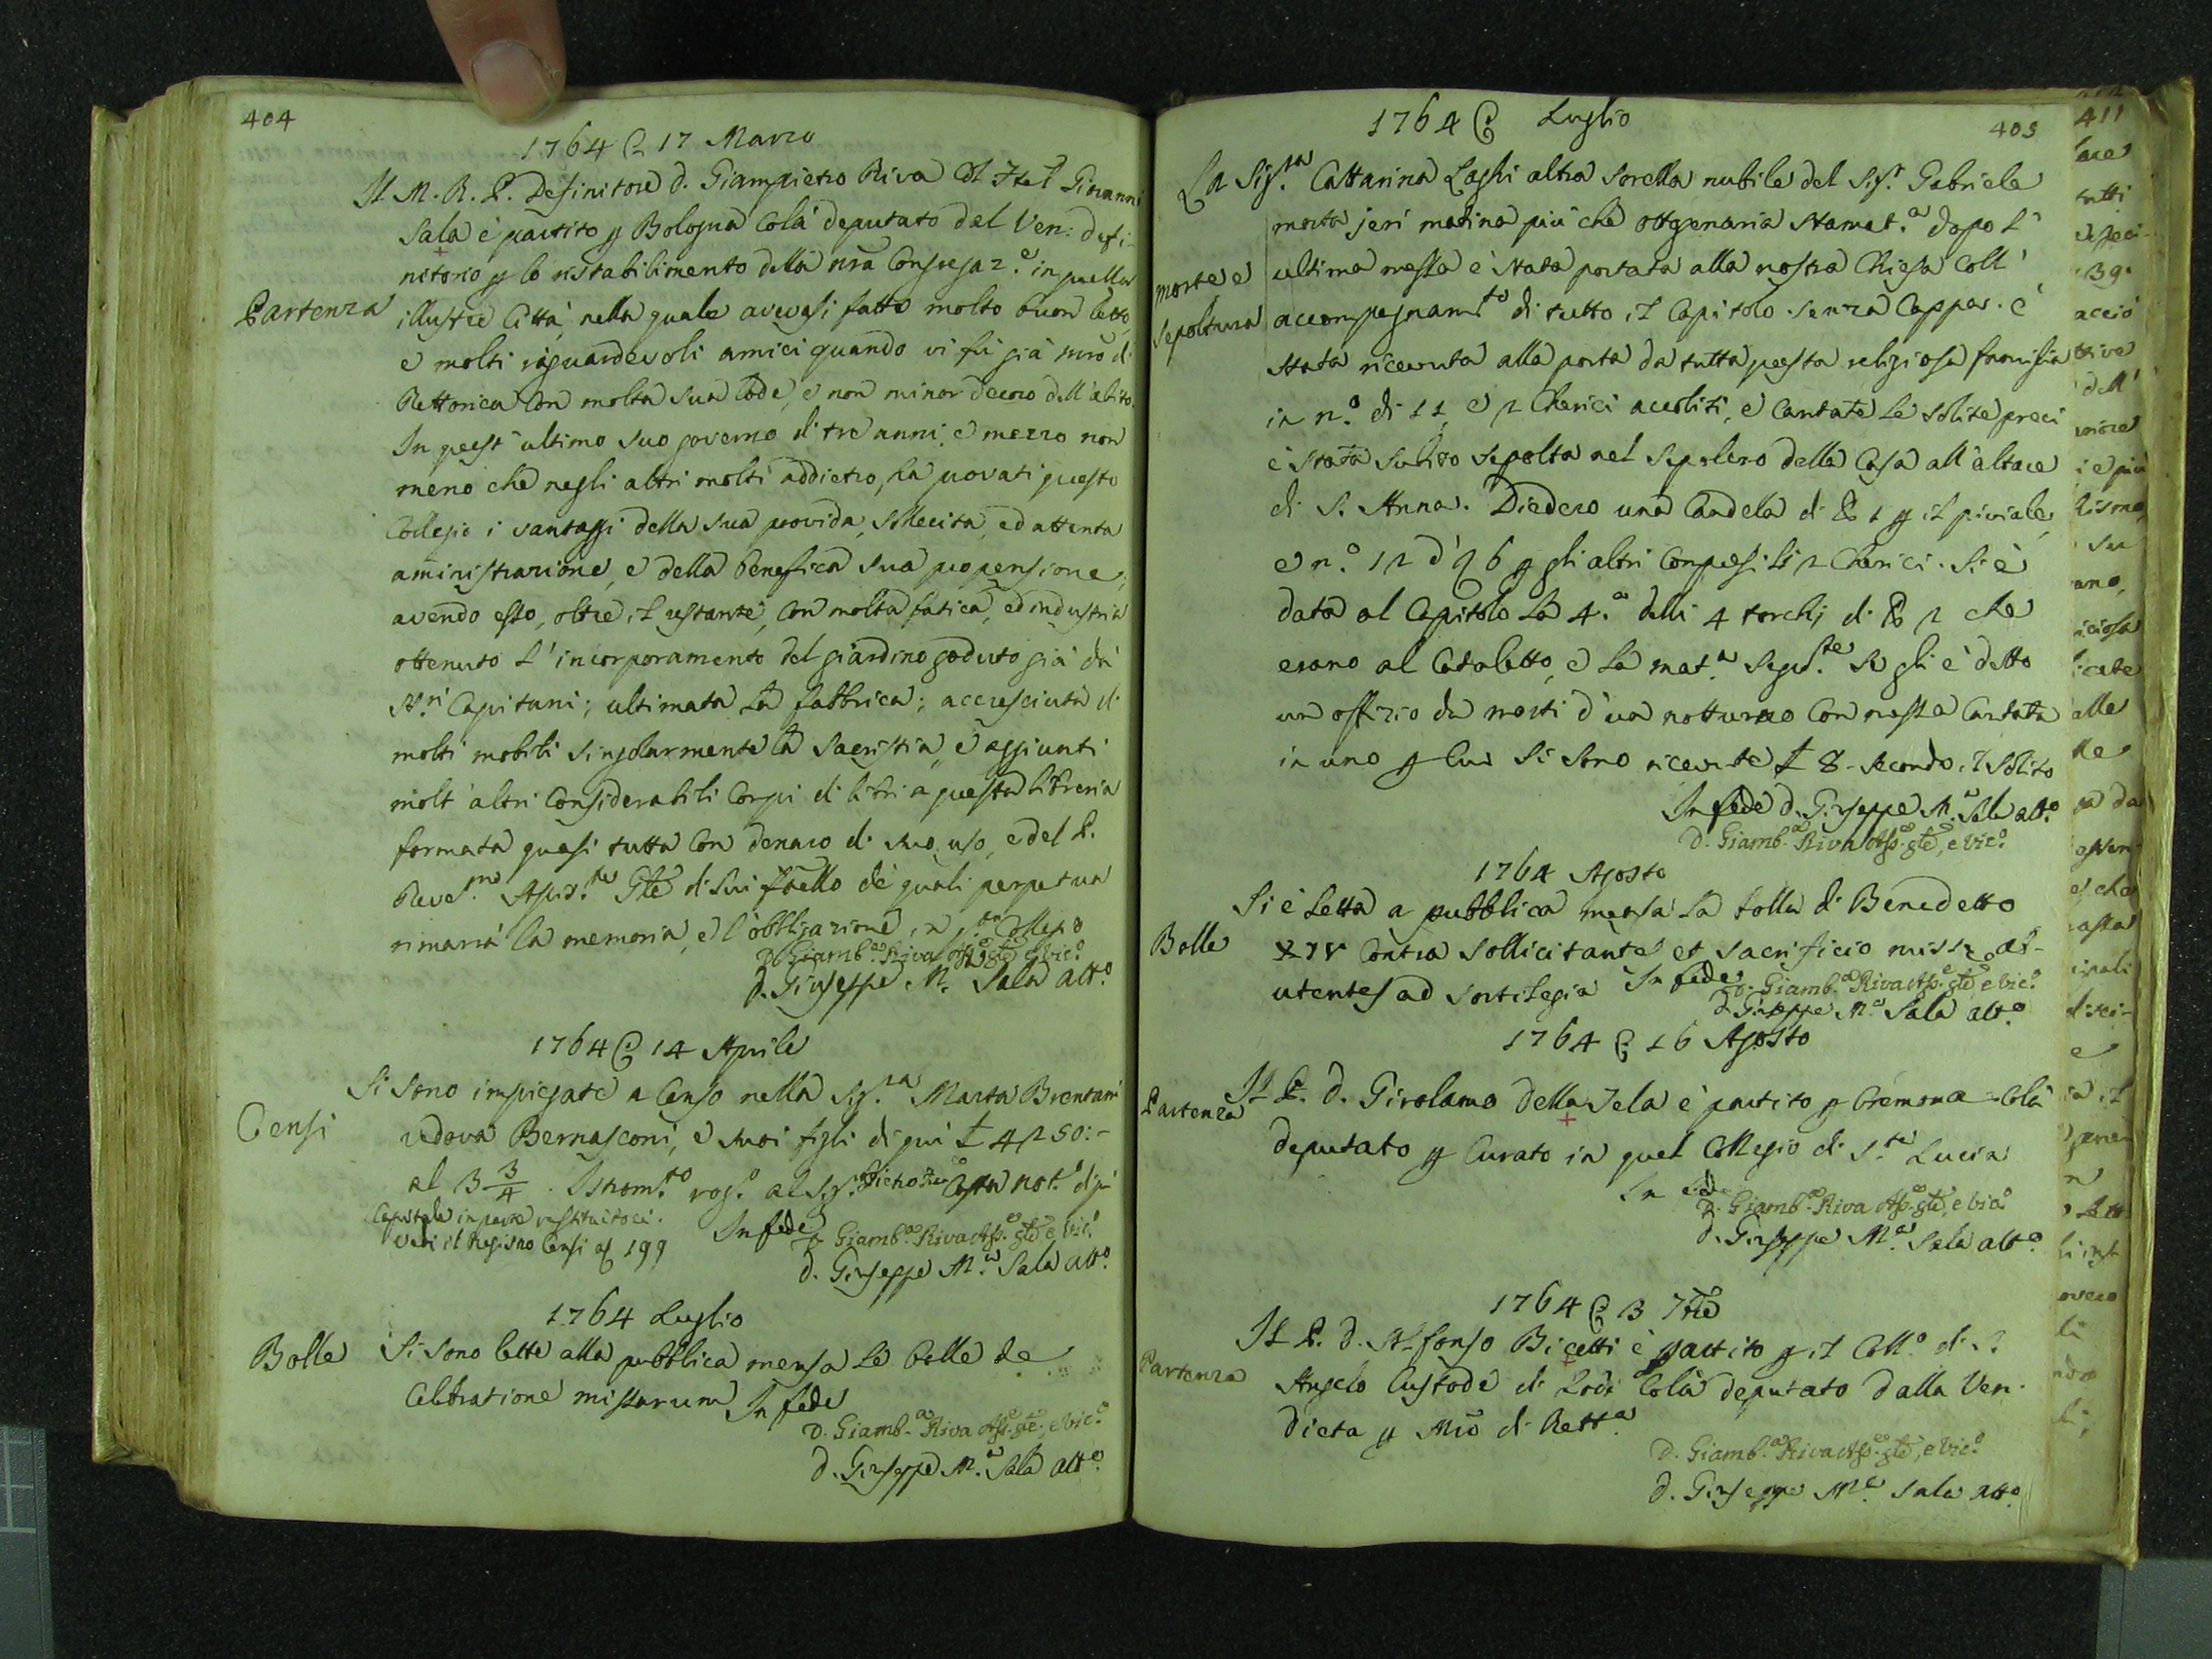 404
1764 17 Marzo
Il M. R. P. Definitore d. Giampietro Riva col Frel Giovanni
Sala è partito p Bologna colà deputato dal Ven: defi-
nitorio p lo ristabilimento della nrã Congregaz.e in quella
Partenza
illustre Città, nella quale avevasi fatto molto buon letto,
e molti riguardevoli amici quando vi fù già mrõ di
Rettorica con molta sua lode, e non minor decoro dell'abito.
In quest'ultimo suo governo di tre anni, e mezzo non
meno che negli altri molti addietro, ha provati questo
Collegio i vantaggi della sua provida, sollecita, ed attenta
aministrazione, e della benefica sua propensione,
avendo esso, oltre il restante, con molta fatica, ed industria
ottenuto l'incorporamento del giardino goduto già da
SS.ri Capitani; ultimata la fabbrica; accresciuta di
molti mobili singolarmente la sacristia, e aggiunti
molt'altri considerabili corpi di libri a questa libreria
formata quasi tutta con denaro di suo uso, e del P.
Rev.mo di lui frãello de' quali perpetua
rimarrà la memoria, e l'obbligazione in q.to Collegio
D. Giamb.a Riva Ass.e gle, e Vic.o
d. Giuseppe M. Sala att.o
1764 14 Aprile
Si sono impiegate a Censo nella Sig.ra Marta Brentani
Censi
vedova Bernasconi, e suoi figli di qui £ 4250:-
al 3 3/4. Istrom.to rog.o al Sig. Pietro Costa not.o di qui
Capitale in parte restituitoci.
Vedi il Registro Censi al 199
In fede
D. Giamb.a Riva Ass.e gle e Vic.o
d. Giuseppe M.a Sala att.o
1764 Luglio
Bolle
Si sono lette alla pubblica mensa le bolle de
Celebratione missarum In fede
D. Giamb.a Riva Ass.e gle, e Vic.o
d. Giuseppe M.a Sala att.o
1764 Luglio
405
La Sig.ra Cattarina Laghi altra sorella nubile del Sig.r Gabriele
morta jeri matina più che ottgenaria stamat.a dopo l'
morte e
ultima messa è stata portata alla nostra Chiesa coll'
sepoltura
accompagnam.to di tutto il Capitolo senza Cappa. è
stata ricevuta alla porta da tutta questa religiosa famiglia
in n.o di 11, e 2 Cherici accoliti, e cantate le solite preci
è stata subito sepolta nel sepolcro della Casa all'altare
di S. Anna. Diedero una Candela di 1 p il piviale,
e n.o 12 d' 6 p gli altri compresi li 2 Cherici. Si è
data al Capitolo la 4.a delli 4 torchj di 2 che
erano al Cadaletto, e la mat.a seg.te se gli è detto
un offizio da morti d'un notturno con messa cantata
in uno p cui si sono ricevute £ 8 - secondo il solito
In fede d. Giuseppe M.a Sala att.o
D. Giamb.a Riva Ass.e gle, e Vic.o
1764 Agosto
Si è letta a pubblica mensa la bolla di Benedetto
Bolle
XIV contra sollicitantes et sacrificio missæ ab-
utentes ad sortilegia In fede
D. Giamb.a Riva Ass.e gle, e Vic.o
d. Giuseppe M.a Sala att.o
1764 16 Agosto
Partenza
Il P. d. Girolamo Della Tela è partito p Cremona colà
deputato p Curato in quel Collegio di S.ta Lucia
In fede
D. Giamb.a Riva Ass.e gle, e Vic.o
d. Giuseppe M.a Sala att.o
1764 3 7bre
Il P. d. Alfonso Bicetti è partito p il Coll.o di S.
Partenza
Angelo Custode di Lodi colà deputato dalla Ven.
Dieta p Mrõ di Rett.a
D. Giamb.a Riva Ass.e gle, e Vic.o
d. Giuseppe M.a Sala att.o
411